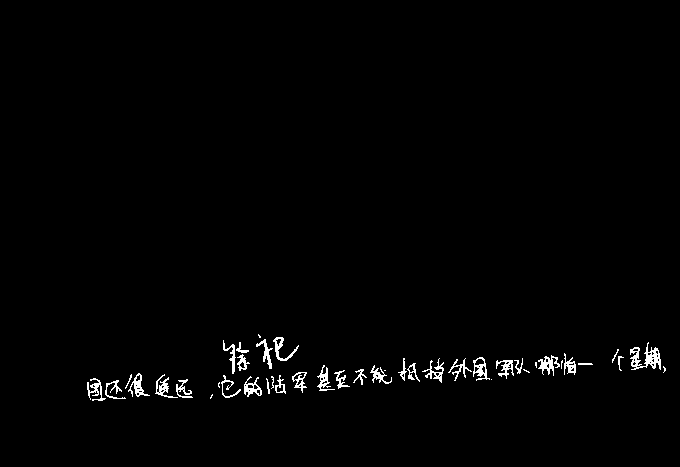 徐祀
国还很遥远，它的陆军甚至不能抵挡外国军队哪怕一个星期，